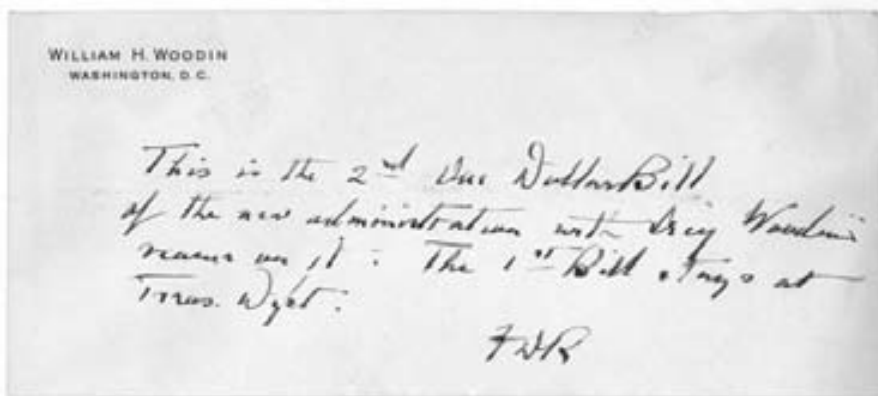 WILLIAM H. WOODIN
WASHINGTON, D.C.
This is the 2nd One Dollar Bill
of the new administration with Woodin's
name on it. The 1st Bill stays at
Treas. Dept.
FDR